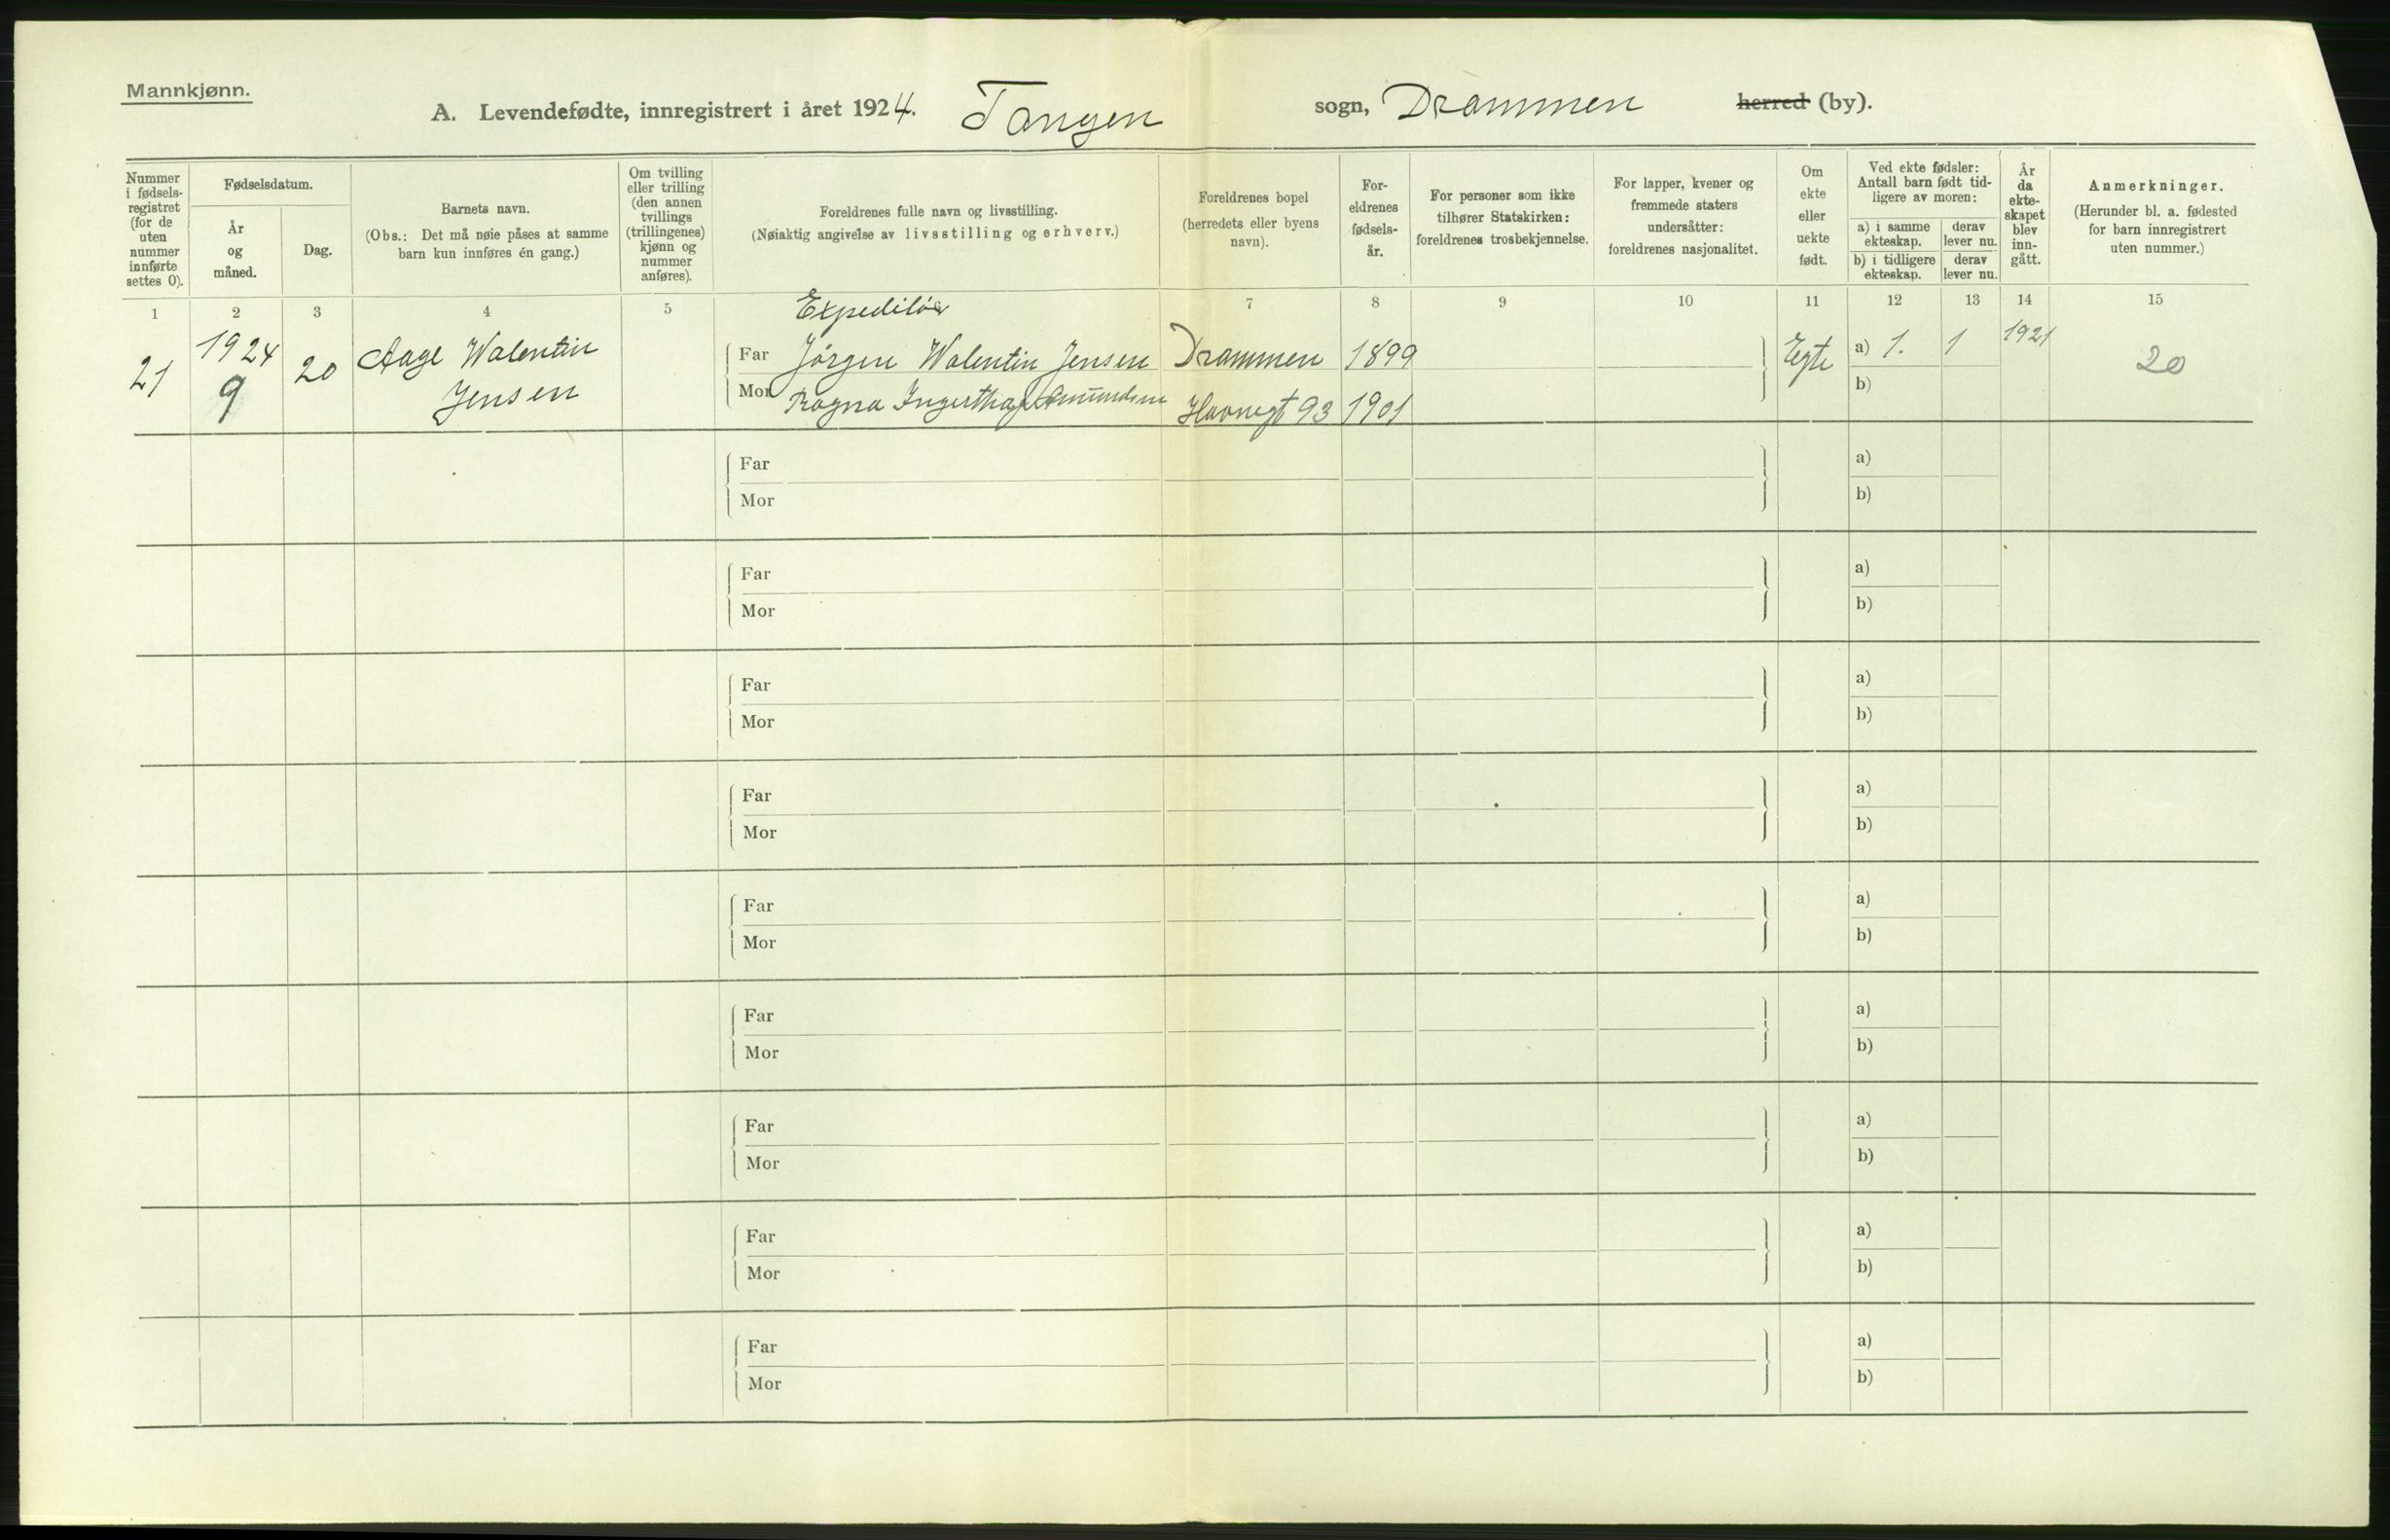 Mannkjønn.
A. Levendefødte, innregistrert i året 1924. Tangen sogn, Drammen herred (by).
Nummer i fødselsregistret (for de uten nummer innførte settes 0).
Fødselsdatum.
År og måned.
Dag.
Barnets navn.
(Obs.: Det må nøie påses at samme barn kun innføres én gang.)
Om tvilling eller trilling (den annen tvillings (trillingenes) kjønn og nummer anføres).
Foreldrenes fulle navn og livsstilling.
(Nøiaktig angivelse av livsstilling og erhverv.)
Foreldrenes bopel
(herredets eller byens navn).
For-
eldrenes
fødsels-
år.
For personer som ikke
tilhører Statskirken:
foreldrenes trosbekjennelse.
For lapper, kvener og
fremmede staters
undersåtter:
foreldrenes nasjonalitet.
Om
ekte
eller
uekte
født.
Ved ekte fødsler:
Antall barn født tid-
ligere av moren:
a) i samme ekteskap.
derav lever nu.
b) i tidligere ekteskap.
derav lever nu.
År
da
ekte-
skapet
blev
inn-
gått.
Anmerkninger.
(Herunder bl. a. fødested
for barn innregistrert
uten nummer.)
1 2 3 4 5 6 7 8 9 10 11 12 13 14 15
Expeditør
21 1924 20 Aage Walentin Far Jørgen Walentin Jensen Drammen 1899 Egte a) 1. 1 1921 20
9 Jensen Mor Ragna Ingertha Amundsen Havnegt 93 1901 b)
Far a)
Mor b)
Far a)
Mor b)
Far a)
Mor b)
Far a)
Mor b)
Far a)
Mor b)
Far a)
Mor b)
Far a)
Mor b)
Far a)
Mor b)
Far a)
Mor b)